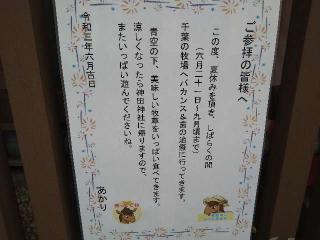 ご参拝の皆様へ
この度、夏休みを頂き、しばらくの間
(六月二十一日~九月頃まで)
千葉の牧場へバカンス&歯の治療に行ってきます。
青空の下、美味しい牧草をいっぱい食べてきます。
涼しくなったら神田神社に帰りますので、
またいっぱい遊んでくださいね。
あかり
令和三年六月吉日